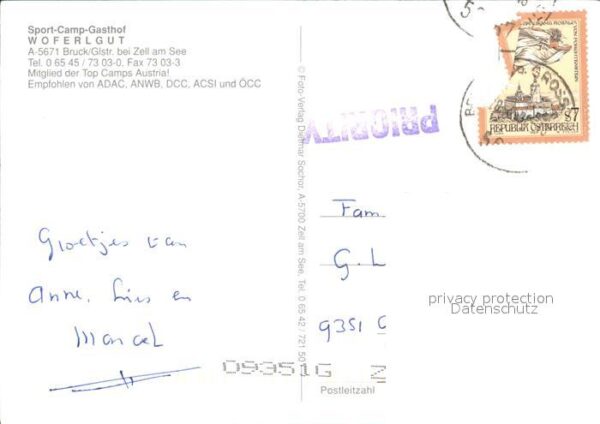 Sport-Camp-Gasthof
WOFERLGUT
A-5671 Bruck/Glstr. bei Zell am See
Tel. 0 65 45 / 73 03-0, Fax 73 03-3
Mitglied der Top Camps Austria!
Empfohlen von ADAC, ANWB, DCC, ACSI und ÖCC
© Foto-Verlag Dietmar Sochor, A-5700 Zell am See, Tel. 0 65 42 / 721 50
PRIORITY
S7
REPUBLIK ÖSTERREICH
Groetjes van
Anne, Lies en
Marcel
Fam
G. L
9351 G
privacy protection
Datenschutz
09351G
Postleitzahl